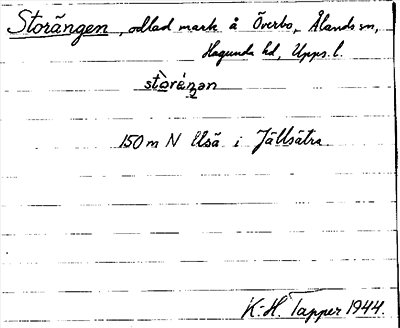 Storängen, odlad mark å Överbo, Ålands sn,
Hagunda hd, Upps. l.
150 m N Elsä i Jällsätra
K.-H. Tapper 1944.